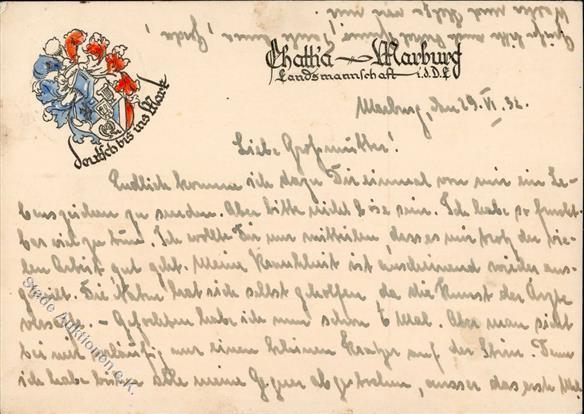 Chattia - Marburg
Landsmannschaft i. d. D. L.
deutsch bis ins Mark
Marburg, den 29. VI. 32.
Liebe Großmutter!
Endlich komme ich dazu Dir einmal von mir ein Le-
benszeichen zu senden. Aber bitte nicht böse sein. Ich habe so furcht-
bar viel zu tun. Ich wollte Dir nur mitteilen, dass es mir trotz der vie-
len Arbeit gut geht. Meine Krankheit ist anscheinend wieder aus-
geheilt. Die Natur hat sich selbst geholfen da die Kunst der Ärzte
versagte. - Gefochten habe ich nun schon 6 Mal. Aber man sieht
bei mir vorläufig nur einen kleinen Kratzer auf der Stirn. Denn
ich habe bisher alle meine Gegner abgestochen, ausser das erste Mal
Stade Auktionen e.K.